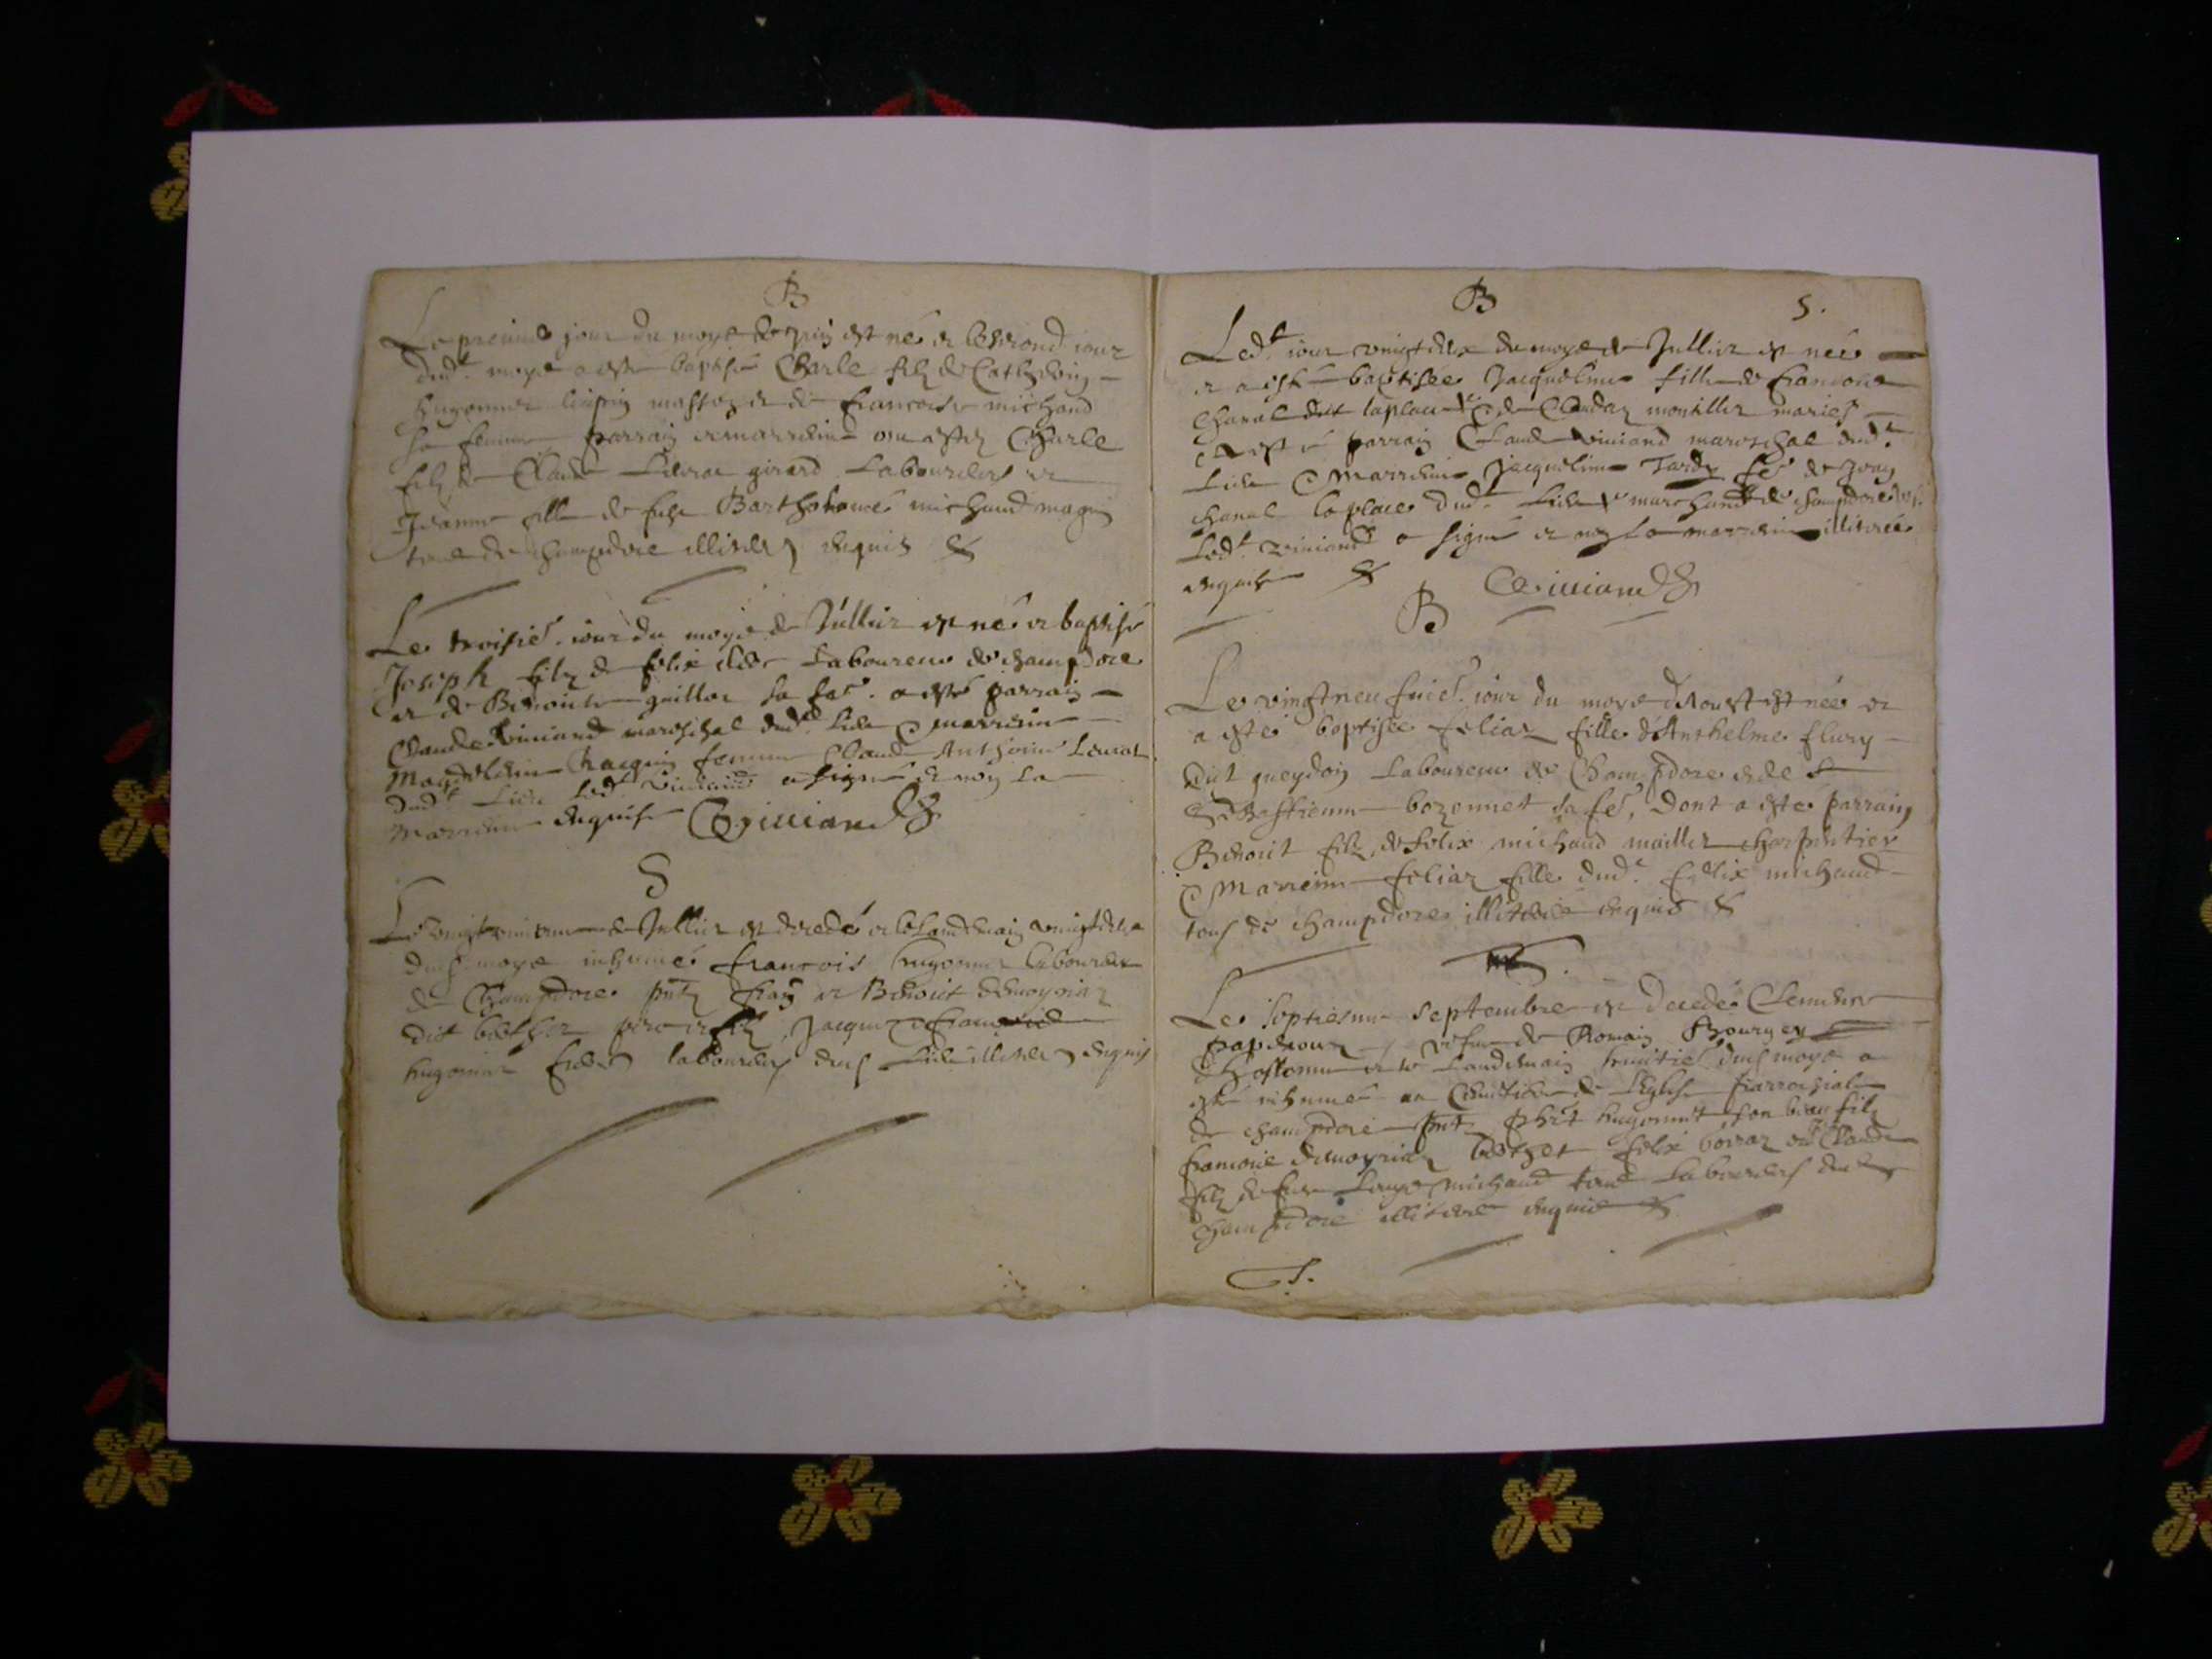 B
Le premie jour du moys de Juin est né et le second jour
dud.t moys a esté baptisé Charle filz de Cathelin
hugonnet masson et de francoise michaud
sa femme parrain et marreine ont estes Charle
filz de Claude girard Laboureurs et
Jeanne fille de fehu Bartholomé michaud magnin
tous de champdore illiteres enquis &
Le troisie. iour du moys de Julliet est né et baptisé
Joseph filz de felix Laboureur de champdore
et de Benoite guillot sa fe. a esté parrain
Claude Viviand mareschal dud. lieu & marreine
Magdeleine femme Claude Anthoine
Dud.t Lieu Led.t Viviand a signé et non la
Marreine enquise C Viviand &
S
Le vingt unieme de Julliet est decedé et le Landemain vingt deux
dud. moys inhumé francois hugonnet laboureur
de Champdore. et Benoit demoyriaz
dit bothet pere et filz, Jacques & francois
hugonnet freres laboureurs dud. Lieu illiteres enquis
B
5.
Led.t iour vingt deux du moys de Jullier est née
et a esté baptisee Jacqueline fille de francois
Chanal dit laplace & de Claudaz montillet mariés
a esté parrain Claude Viviand mareschal dud.t
Lieu & Marreine Jacqueline Tardy fe. de Jean
chanal laplace dud.t Lieu marchand de champdore
Led.t Viviand a signé et non la marreine illiterée
enquise & C Viviand &
B
Le vingt neufvie. iour du moys d'Aoust est née et
a esté baptisee feliaz fille d'Anthelme flury
Dict gueydon Laboureur de Champdore et de
Sebastienne bozonnet sa fe. Dont a esté parrain
Benoit filz de felix michaud maillet charpentier
& Marreine feliaz fille dud.t felix michaud
tous de champdore illiteres enquis &
S.
Le septiesme Septembre est decedée Clemence
vefve de Romain Bourgey
et le Landemain huitie. dud. moys a
esté inhumée au Cimetiere de L'Eglise parrochiale
de champdore hugonnet son beau filz
francois demoyriaz bothet felix et Claude
filz de feu michaud tous Laboureurs dud.
Champdore illiteres enquis &
S.